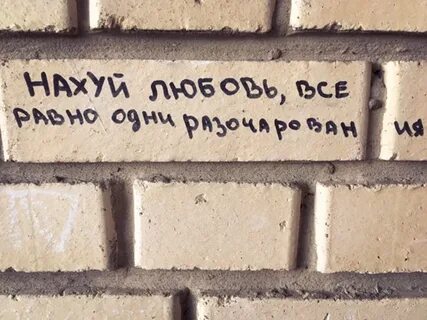 НАХУЙ ЛЮБОВЬ, ВСЕ
РАВНО ОДНИ РАЗОЧАРОВАН ИЯ